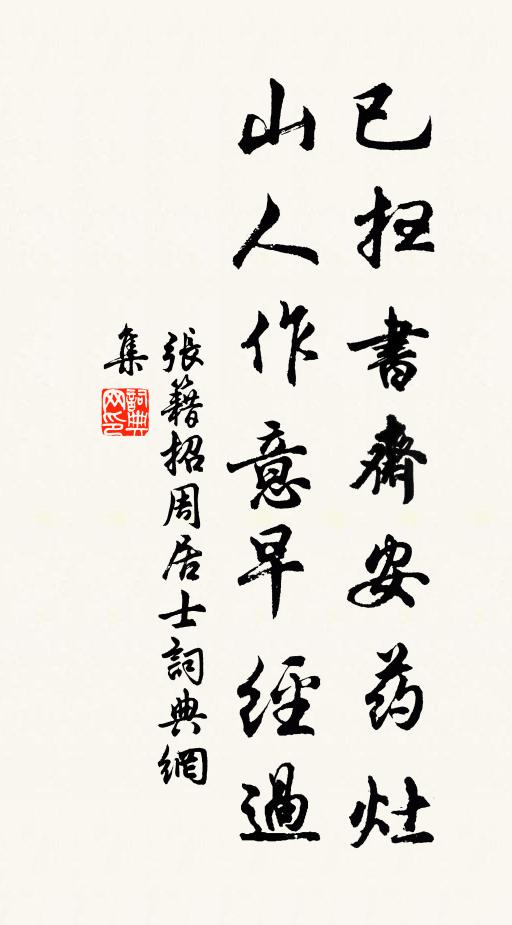 已扫書齋安药灶
山人作意早經過
張籍招周居士詞典網
集
詞典
网印